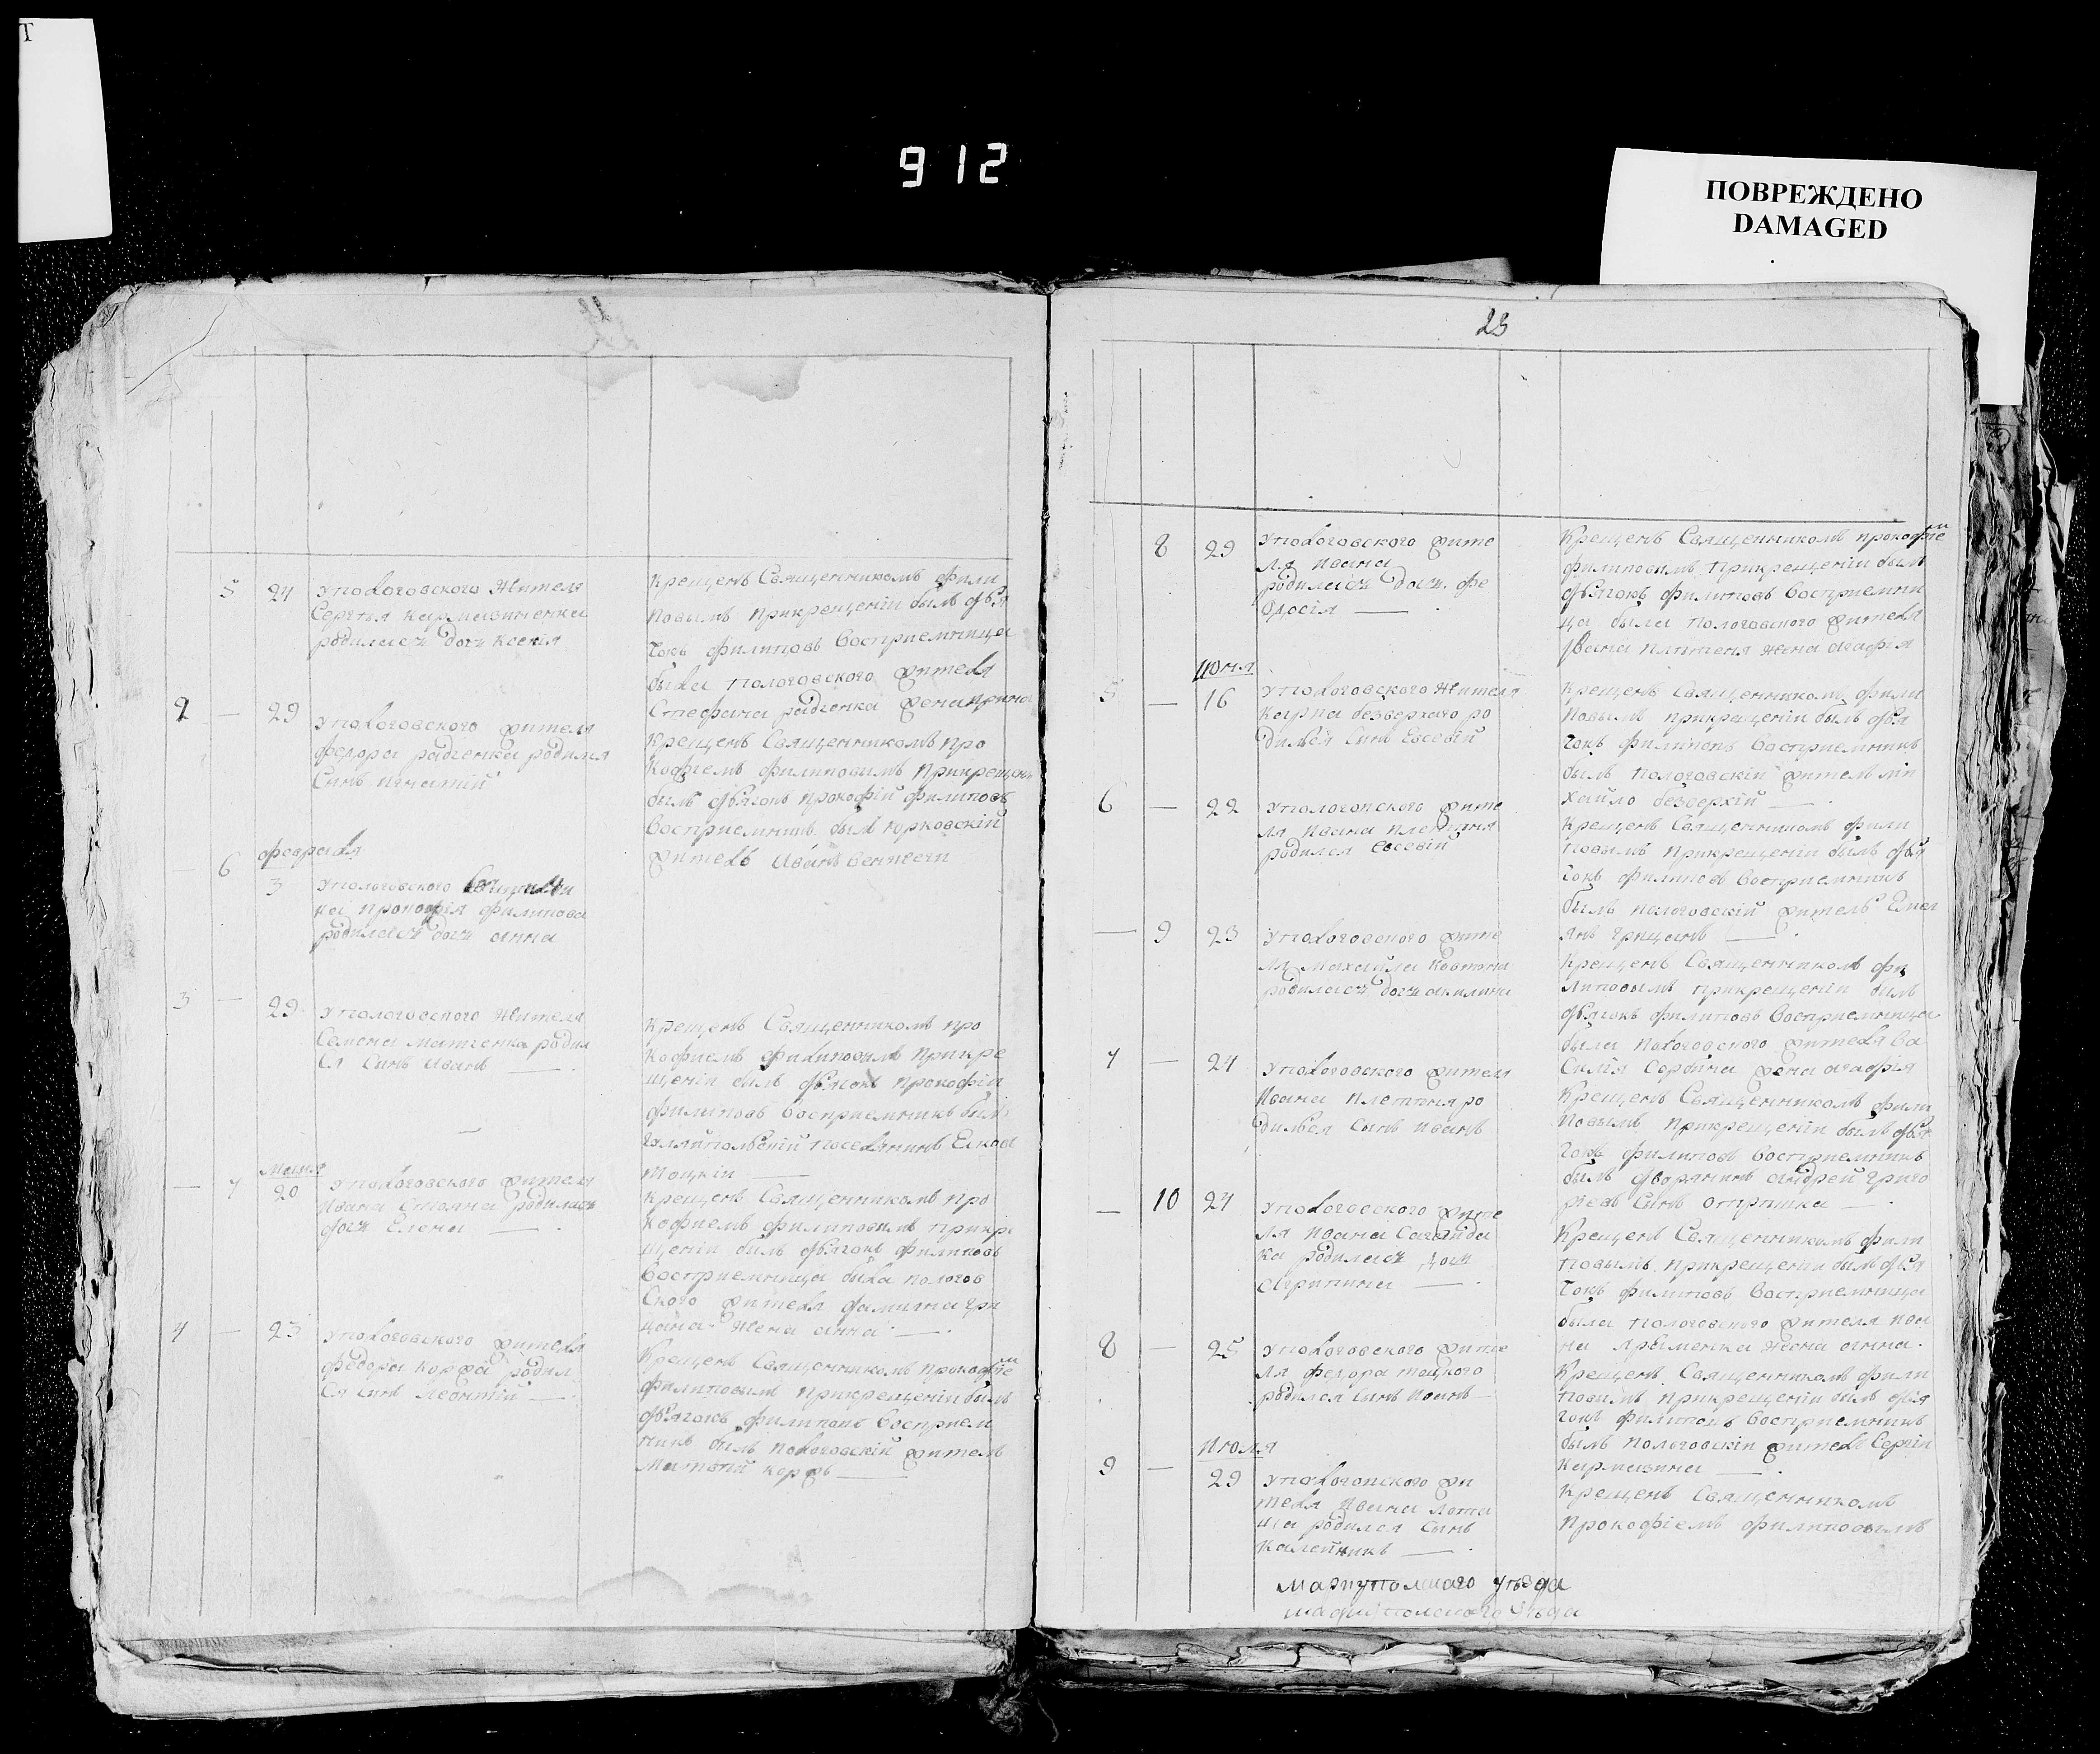 Т
912
ПОВРЕЖДЕНО
DAMAGED
5 24 упологовского жителя
Сергѣя Кармазиненка
родилась дочъ Ксенія
Крещенъ Священникомъ фили
повымъ прикрещеніи былъ дья
чокъ филиповъ Восприемница
была пологовского жителя
Стефана радченка жена
2 — 29 упологовского жителя
федора радченка родился
Сынъ игнатій
Крещенъ Священникомъ про
кофіемъ филиповимъ прикрещени
былъ дьячокъ прокофій филиповъ
Восприемникъ былъ юрковскій
житель Иванъ
февраля
— 6 3 упологовского
ка прокофія филипова
родилась дочъ анна
3 — 29 упологовского жителя
Семена матченка родил
ся Синъ Иванъ —
Крещенъ Священникомъ про
кофиемъ филиповимъ прикре
щеніи былъ дьячокъ прокофій
филиповъ Восприемникъ былъ
гуляйпольскій поселянинъ
тоцкій —
маия
— 7 20 упологовского жителя
Ивана Стояна родилась
дочъ Елена —
Крещенъ Священникомъ про
кофиемъ филиповимъ прикре
щеніи былъ дьячокъ филиповъ
Восприемница была пологов
Ского жителя фамина гри
цана жена анна —
4 — 23 упологовского жителя
федора коржа родил
ся Синъ Леонтій —
Крещенъ Священникомъ прокофие
филиповимъ прикрещеніи былъ
дьячокъ филиповъ Восприем
никъ былъ пологовскій житель
коржъ —
23
8 29 упологовского жите
ля ивана
родилась дочъ фе
одосія —
Крещенъ Священникомъ прокофие
филиповимъ прикрещеніи былъ
дьячокъ филиповъ Восприемни
ца была пологовского жителя
Ивана плетеня жена агафія
июня
5 — 16 упологовского жителя
Карпа безверхаго ро
дився Синъ Евсевій
Крещенъ Священникомъ фили
повымъ прикрещеніи былъ дья
чокъ филиповъ Восприемникъ
былъ пологовскій житель ми
хайло безверхій —
6 — 22 упологовского жите
ля ивана плетеня
родился евсевій
Крещенъ Священникомъ фили
повымъ прикрещеніи былъ дья
чокъ филиповъ Восприемникъ
былъ пологовскій житель Емел
янъ грицанъ —
— 9 23 упологовского жите
ля Михаила
родилась дочъ акилина
Крещенъ Священникомъ фи
липовымъ прикрещеніи былъ
дьячокъ филиповъ Восприемница
была пологовского жителя Ва
Силія Сербина жена агафія
7 — 24 упологовского жителя
Ивана плетеня ро
дився Сынъ Иванъ
Крещенъ Священникомъ фили
повымъ прикрещеніи былъ дья
чокъ филиповъ Восприемникъ
былъ дворянинъ андрей григо
ріевъ Сынъ —
— 10 24 упологовского жите
ля Ивана Сагайда
ка родилась дочъ
Агрипина —
Крещенъ Священникомъ фили
повымъ прикрещеніи былъ дья
чокъ филиповъ Восприемница
была пологовского жителя ива
на Яременка жена анна.
8 — 25 упологовского жите
ля федора тоцкого
родился Синъ Иванъ
Крещенъ Священникомъ фили
повымъ прикрещеніи былъ дья
чокъ филиповъ Восприемникъ
былъ пологовскій житель Сергій
Кармазина —
Июля
9 — 29 упологовского жи
теля Ивана
ша родился Сынъ
Калейникъ —
Крещенъ Священникомъ
прокофіемъ филиповимъ
мариуполского уѣзда
мариуполского уѣзда